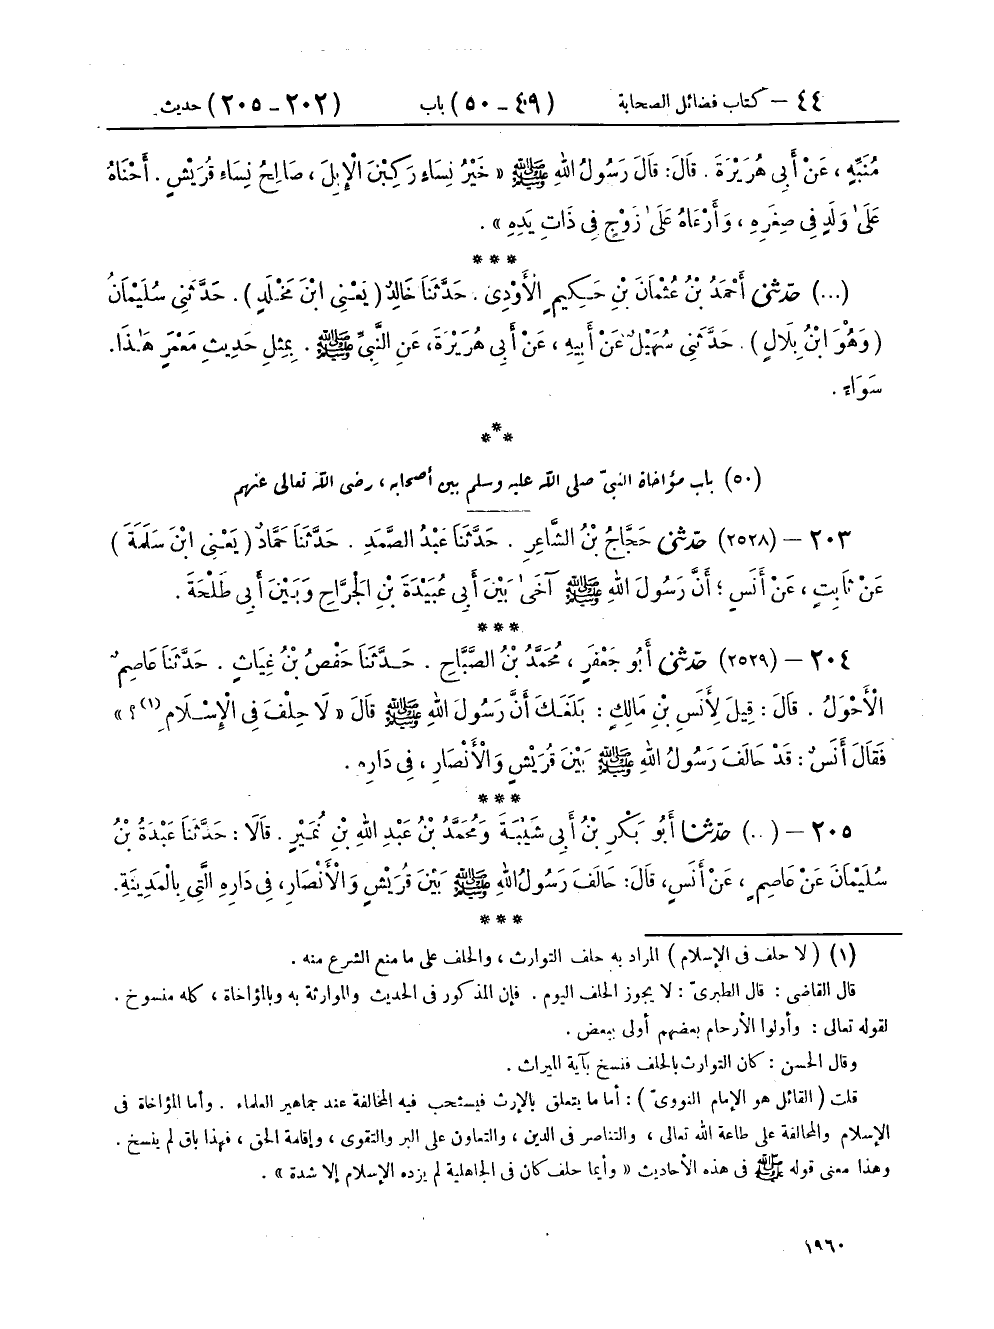 ٤٤ – كتاب فضائل الصحابة (٤٩ – ٥٠) باب (٢٠٢ – ٢٠٥) حديث
مُنَبِّهٍ ، عَنْ أَبِي هُرَيْرَةَ . قَالَ: قَالَ رَسُولُ اللهِ ﷺ « خَيْرُ نِسَاءٍ رَكِبْنَ الْإِبِلَ ، صَالِحُ نِسَاءِ قُرَيْشٍ . أَحْنَاهُ
عَلَىٰ وَلَدٍ فِي صِغَرِهِ ، وَأَرْعَاهُ عَلَىٰ زَوْجٍ فِي ذَاتِ يَدِهِ » .
* * *
(...) حدّثني أَحْمَدُ بْنُ عُثْمَانَ بْنِ حَكِيمٍ الْأَوْدِيُّ . حَدَّثَنَا خَالِدٌ (يَعْنِي ابْنَ مَخْلَدٍ) . حَدَّثَنِي سُلَيْمَانُ
(وَهُوَ ابْنُ بِلَالٍ) . حَدَّثَنِي سُهَيْلٌ عَنْ أَبِيهِ ، عَنْ أَبِي هُرَيْرَةَ، عَنِ النَّبِيِّ ﷺ . بِمِثْلِ حَدِيثِ مَعْمَرٍ هَٰذَا.
سَوَاءً .
* * *
(٥٠) باب مؤاخاة النبيّ صلى الله عليه وسلم بين أصحابه ، رضى الله تعالى عنهم
٢٠٣ – (٢٥٢٨) حدّثني حَجَّاجُ بْنُ الشَّاعِرِ . حَدَّثَنَا عَبْدُ الصَّمَدِ . حَدَّثَنَا حَمَّادٌ (يَعْنِي ابْنَ سَلَمَةَ)
عَنْ ثَابِتٍ ، عَنْ أَنَسٍ ؛ أَنَّ رَسُولَ اللهِ ﷺ آخَىٰ بَيْنَ أَبِي عُبَيْدَةَ بْنِ الْجَرَّاحِ وَبَيْنَ أَبِي طَلْحَةَ .
* * *
٢٠٤ – (٢٥٢٩) حدّثني أَبُو جَعْفَرٍ ، مُحَمَّدُ بْنُ الصَّبَّاحِ . حَدَّثَنَا حَفْصُ بْنُ غِيَاثٍ . حَدَّثَنَا عَاصِمٌ
الْأَحْوَلُ . قَالَ : قِيلَ لِأَنَسِ بْنِ مَالِكٍ : بَلَغَكَ أَنَّ رَسُولَ اللهِ ﷺ قَالَ « لَا حِلْفَ فِي الْإِسْلَامِ(١) ؟ »
فَقَالَ أَنَسٌ : قَدْ حَالَفَ رَسُولُ اللهِ ﷺ بَيْنَ قُرَيْشٍ وَالْأَنْصَارِ ، فِي دَارِهِ .
* * *
٢٠٥ – (...) حدّثنا أَبُو بَكْرِ بْنُ أَبِي شَيْبَةَ وَمُحَمَّدُ بْنُ عَبْدِ اللهِ بْنِ نُمَيْرٍ . قَالَا : حَدَّثَنَا عَبْدَةُ بْنُ
سُلَيْمَانَ عَنْ عَاصِمٍ ، عَنْ أَنَسٍ، قَالَ: حَالَفَ رَسُولُ اللهِ ﷺ بَيْنَ قُرَيْشٍ وَالْأَنْصَارِ، فِي دَارِهِ الَّتِي بِالْمَدِينَةِ.
* * *
(١) (لا حلف فى الإسلام) المراد به حلف التوارث ، والحلف على ما منع الشرع منه .
قال القاضى : قال الطبرىّ : لا يجوز الحلف اليوم . فإن المذكور فى الحديث والموارثة به وبالمؤاخاة ، كله منسوخ .
لقوله تعالى : وأولوا الأرحام بعضهم أولى ببعض .
وقال الحسن : كان التوارث بالحلف فنسخ بآية الميراث .
قلت (القائل هو الإمام النووىّ) : أما ما يتعلق بالإرث فيستحب فيه المخالفة عند جماهير العلماء . وأما المؤاخاة فى
الإسلام والمحالفة على طاعة الله تعالى ، والتناصر فى الدين ، والتعاون على البر والتقوى ، وإقامة الحق ، فهذا باق لم ينسخ .
وهذا معنى قوله ﷺ فى هذه الأحاديث « وأيما حلف كان فى الجاهلية لم يزده الإسلام إلا شدة » .
١٩٦٠